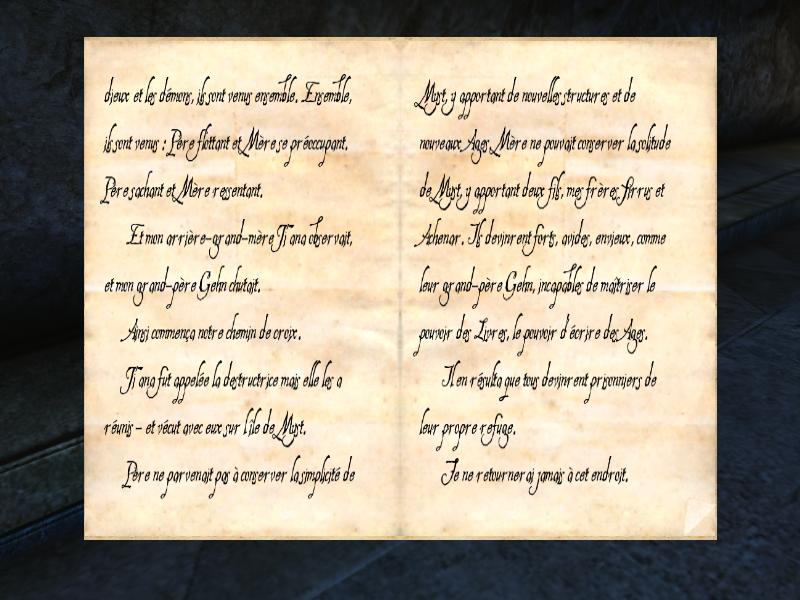 dieux et les démons, ils sont venus ensemble. Ensemble,
ils sont venus : Père flottant et Mère se préoccupant.
Père sachant et Mère ressentant.
Et mon arrière-grand-mère Ti'ana observait,
et mon grand-père Gehn chutait.
Ainsi commença notre chemin de croix.
Ti'ana fut appelée la destructrice mais elle les a
réunis - et vécut avec eux sur l'île de Myst.
Père ne parvenait pas à conserver la simplicité de
Myst, y apportant de nouvelles structures et de
nouveaux Ages. Mère ne pouvait conserver la solitude
de Myst, y apportant deux fils, mes frères Sirrus et
Achenar. Ils devinrent forts, avides, envieux, comme
leur grand-père Gehn, incapables de maîtriser le
pouvoir des Livres, le pouvoir d'écrire des Ages.
Il en résulta que tous devinrent prisonniers de
leur propre refuge.
Je ne retournerai jamais à cet endroit.